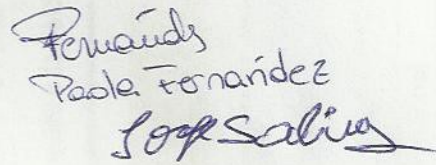 Fernands
Paola Fernandez
Jorge Salinas